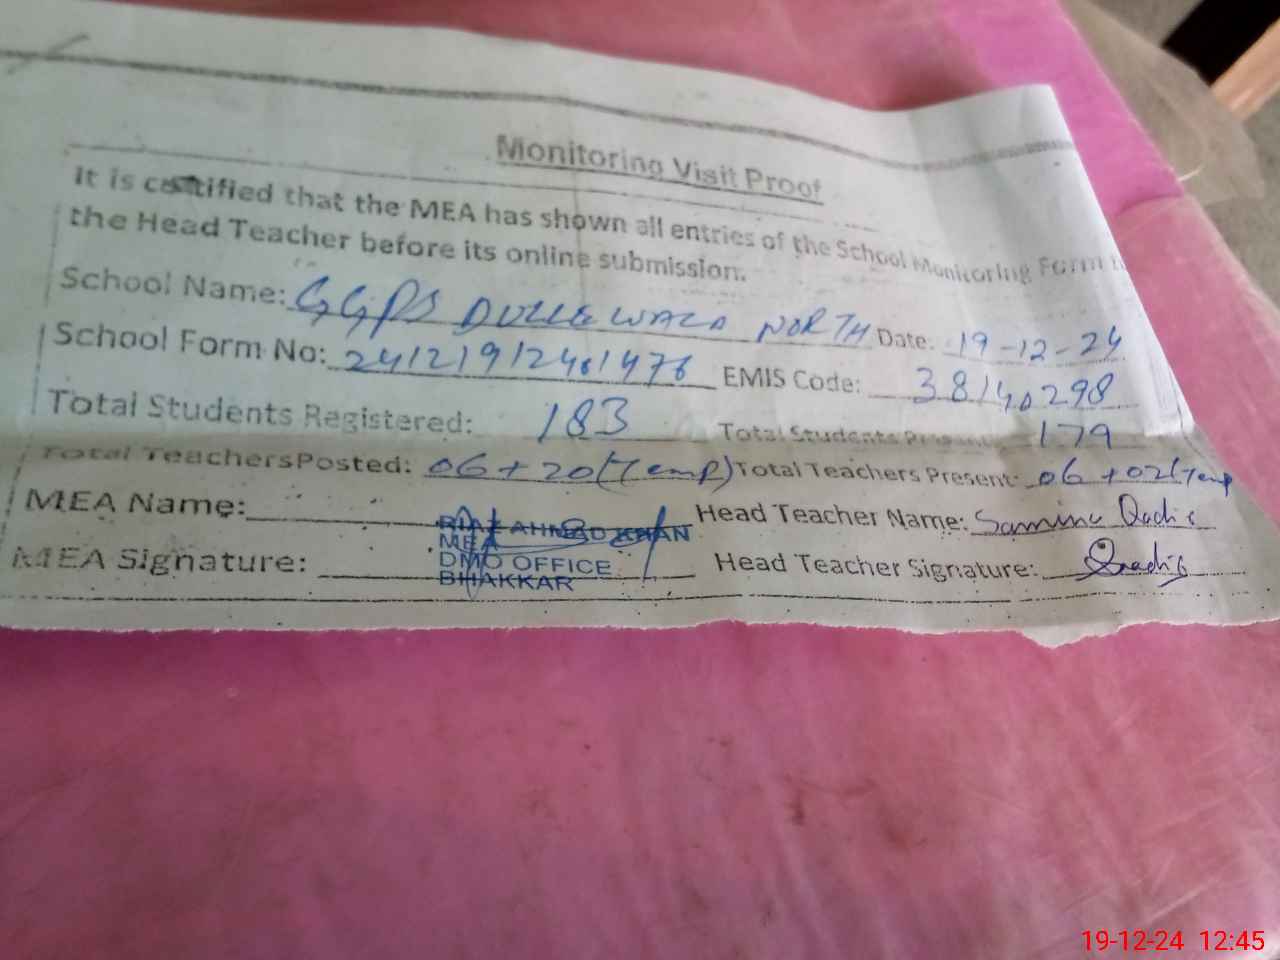 Monitoring Visit Proof
It is certified that the MEA has shown all entries of the School Monitoring Form
the Head Teacher before its online submission.
School Name: GGPS DULLEWALA NORTH Date: 19-12-24
School Form No: EMIS Code: 38140298
Total Students Registered: 183 Total Students Present 179
Total Teachers Posted: 06 + 20 (Temp) Total Teachers Present: 06 + 02 (Temp
MEA Name: RIAZ AHMAD KHAN Head Teacher Name: Samina
MEA
MEA Signature: DMO OFFICE Head Teacher Signature:
BHAKKAR
19-12-24 12:45